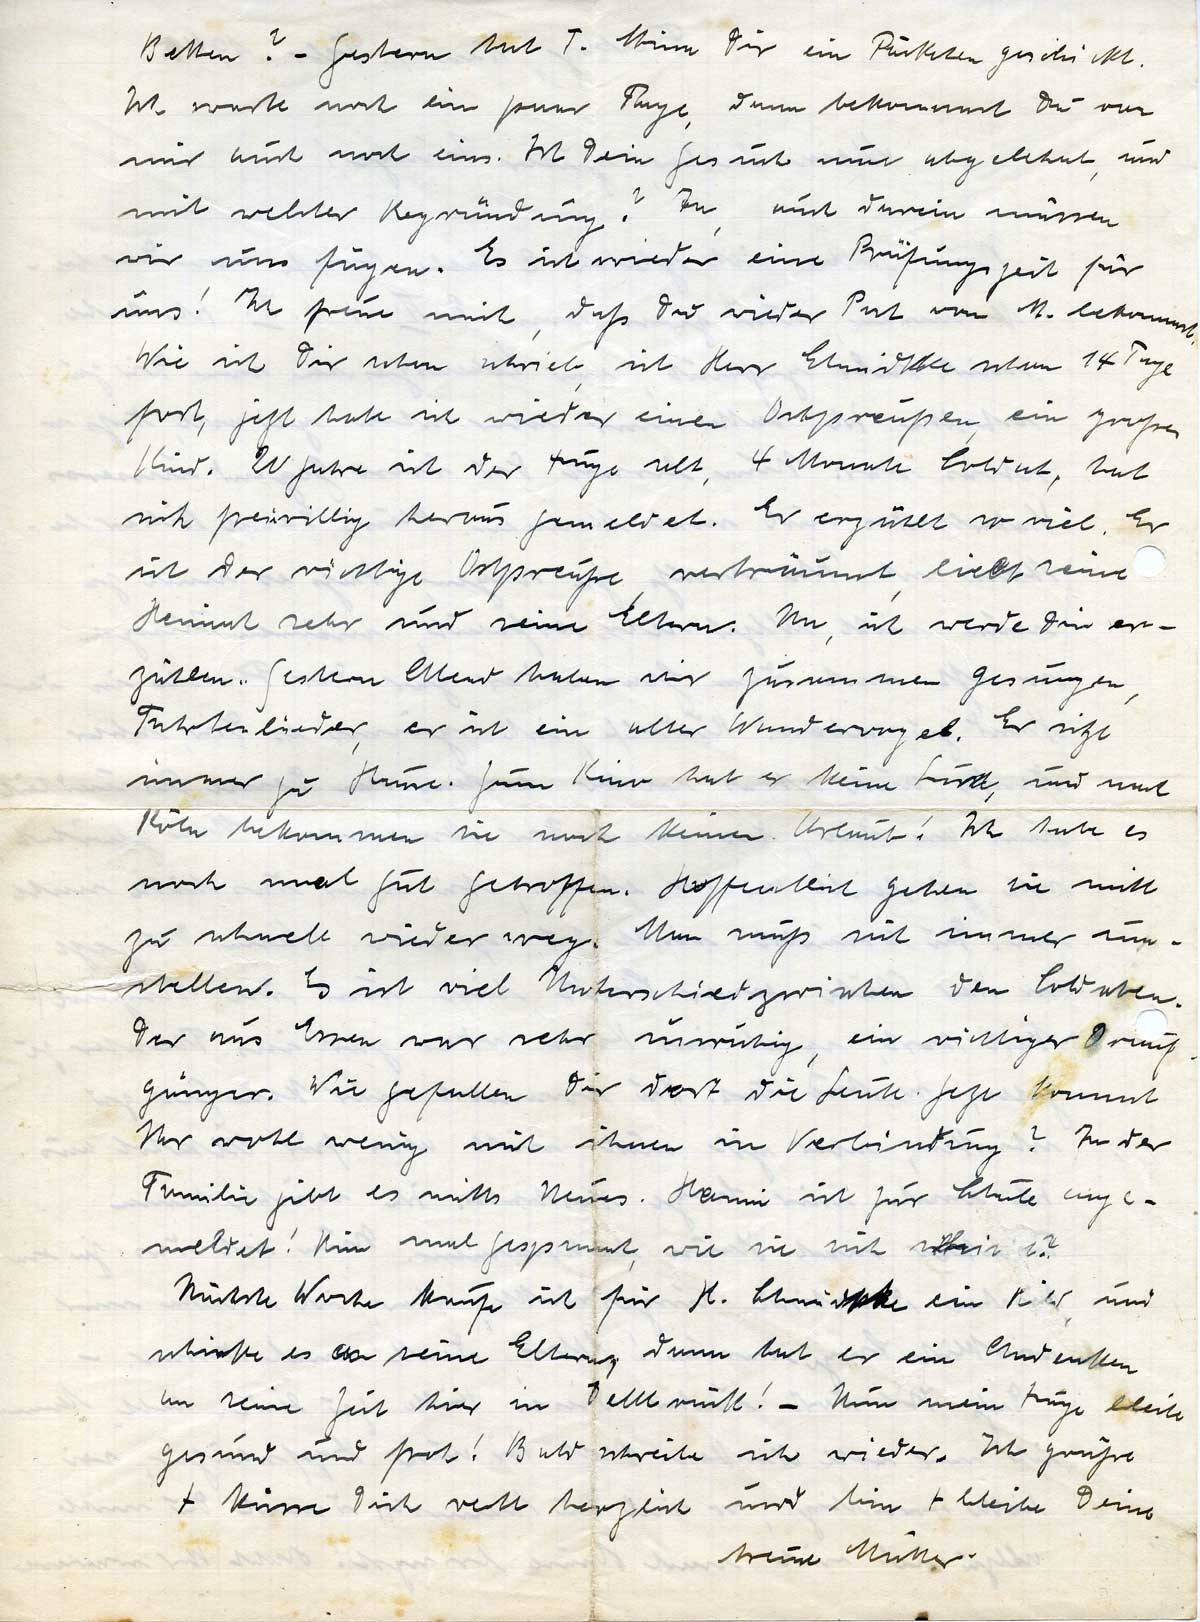 Betten? – Gestern hat T. Mina Dir ein Päckchen geschickt.
Ich warte noch ein paar Tage, dann bekommst Du von
mir auch noch eins. Ist Dein Gesuch nun abgelehnt, und
mit welcher Begründung? Ja, auch darein müssen
wir uns fügen. Es ist wieder eine Prüfungszeit für
uns! Ich freue mich, daß Du wieder Post von M. bekommst.
Wie ich Dir schon schrieb, ist Herr schon 14 Tage
fort, jetzt habe ich wieder einen Ostpreußen, ein großes
Kind. 20 Jahre ist der Junge alt, 4 Monate Soldat, hat
sich freiwillig heraus gemeldet. Er erzählt so viel. Er
ist der richtige Ostpreuße, verträumt, liebt seine
Heimat sehr und seine Eltern. Na, ich werde Dir er-
zählen. Gestern Abend haben wir zusammen gesungen,
Fahrtenlieder, er ist ein alter Wandervogel. Er sitzt
immer zu Hause. Zum Kino hat er keine Lust, und nach
Köln bekommen sie noch keinen Urlaub! Ich habe es
noch mal gut getroffen. Hoffentlich gehen sie nicht
zu schnell wieder weg. Man muß sich immer um-
stellen. Es ist viel Unterschied zwischen den Soldaten.
Der aus Essen war sehr unruhig, ein richtiger Drauf-
gänger. Wie gefallen Dir dort die Leute. Jetzt kommt
Ihr wohl wenig mit ihnen in Verbindung? In der
Familie gibt es nichts Neues. Hanni ist zur Schule ange-
meldet! Bin mal gespannt, wie sie sich
Nächste Woche kaufe ich für H. ein Bild, und
schicke es an seine Eltern, dann hat er ein Andenken
an seine Zeit hier in ! – Nun mein Junge bleibe
gesund und froh! Bald schreibe ich wieder. Ich grüße
+ küsse Dich recht herzlich und bin + bleibe Deine
treue Mutter.